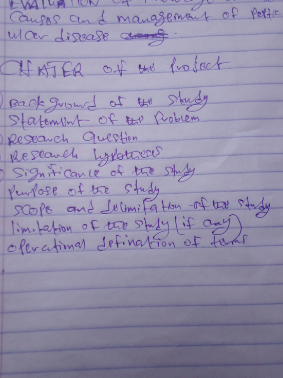 EVALUATION of
Causes and management of Peptic
ulcer disease
CHAPTER of the Project
Background of the study
Statement of the Problem
Research Question
Research hypothesis
Significance of the study
Purpose of the study
Scope and delimitation of the study
limitation of the study (if any)
operational defination of terms